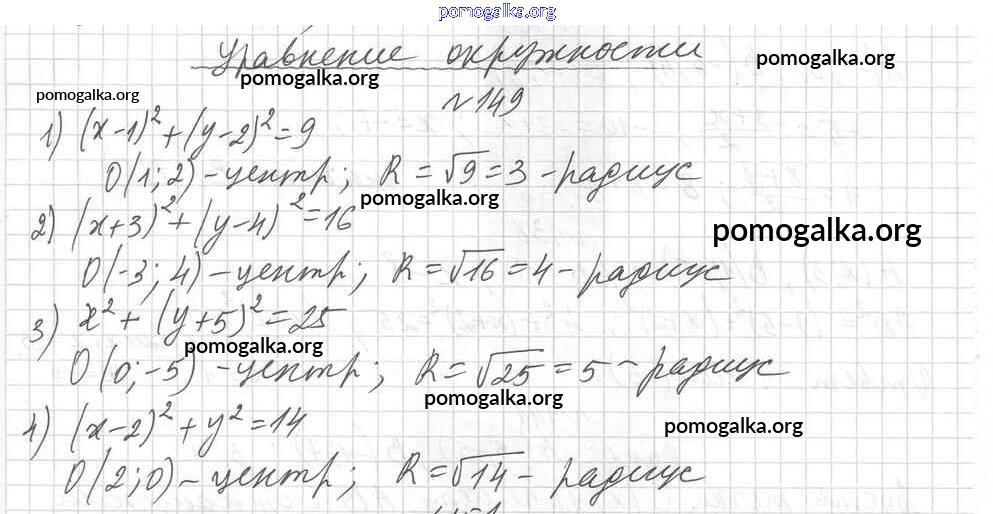 pomogalka.org
Уравнение окружности
pomogalka.org pomogalka.org
pomogalka.org
№149
1) (x-1)²+(y-2)²=9
O(1; 2) - центр; R=√9=3 - радиус
pomogalka.org
2) (x+3)²+(y-4)²=16
pomogalka.org
O(-3; 4) - центр; R=√16=4 - радиус
3) x²+(y+5)²=25
pomogalka.org
O(0; -5) - центр; R=√25=5 - радиус
pomogalka.org
4) (x-2)²+y²=14
pomogalka.org
O(2; 0) - центр; R=√14 - радиус